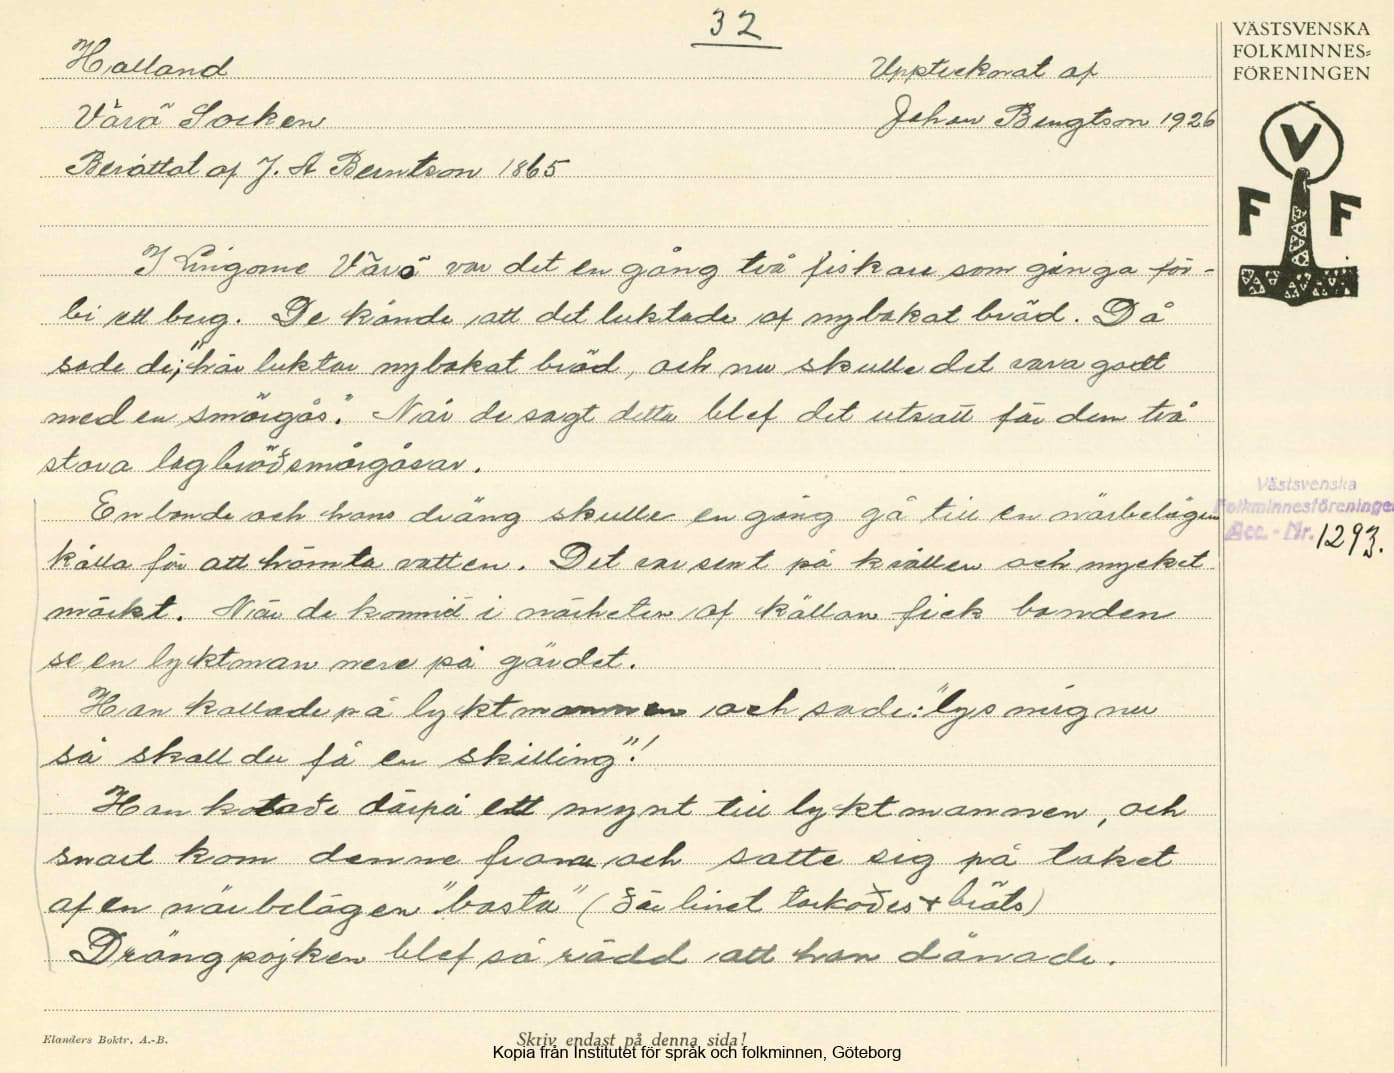 32
Halland
Upptecknat af
Värö Socken
Johan Bengtson 1926
Berättat af J. A Berntson 1865
I Lingome Värö var det en gång två fiskare som gånga för-
bi ett berg. De kände att det luktade af nybakat bröd. Då
sade de; "här luktar nybakat bröd, och nu skulle det vara godt
med en smörgås". När de sagt detta blef det utsatt för dem två
stora lagbrödsmörgåsar.
En bonde och hans dräng skulle en gång gå till en närbelägen
källa för att hämta vatten. Det var sent på kvällen och mycket
mörkt. När de kommit i närheten af källan fick bonden
se en lycktman nere på gärdet.
Han kallade på lycktmannen och sade: "lys mig nu
så skall du få en skilling"!
Han kastade därpå ett mynt till lycktmannen, och
snart kom denne fram och satte sig på taket
af en närbelägen "basta" (där linet torkades + bröts)
Drängpojken blef så rädd att han dånade.
Elanders Boktr. A.-B.
Skriv endast på denna sida!
Kopia från Institutet för språk och folkminnen, Göteborg
VÄSTSVENSKA
FOLKMINNES-
FÖRENINGEN
V
F F
Västsvenska
Folkminnesföreningen
Acc. - Nr. 1293.